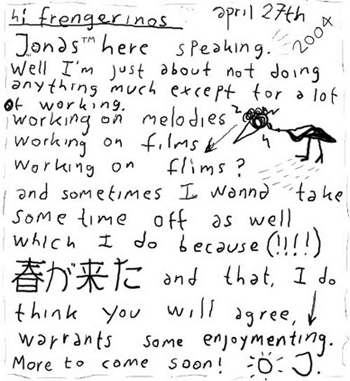 hi frengerinos april 27th
2004
Jonas™ here speaking.
Well I'm just about not doing
anything much except for a lot
of working.
working on melodies
working on films
working on flims?
and sometimes I wanna take
some time off as well
which I do because (!!!!)
春が来た and that, I do
think you will agree,
warrants some enjoymenting.
More to come soon! J.